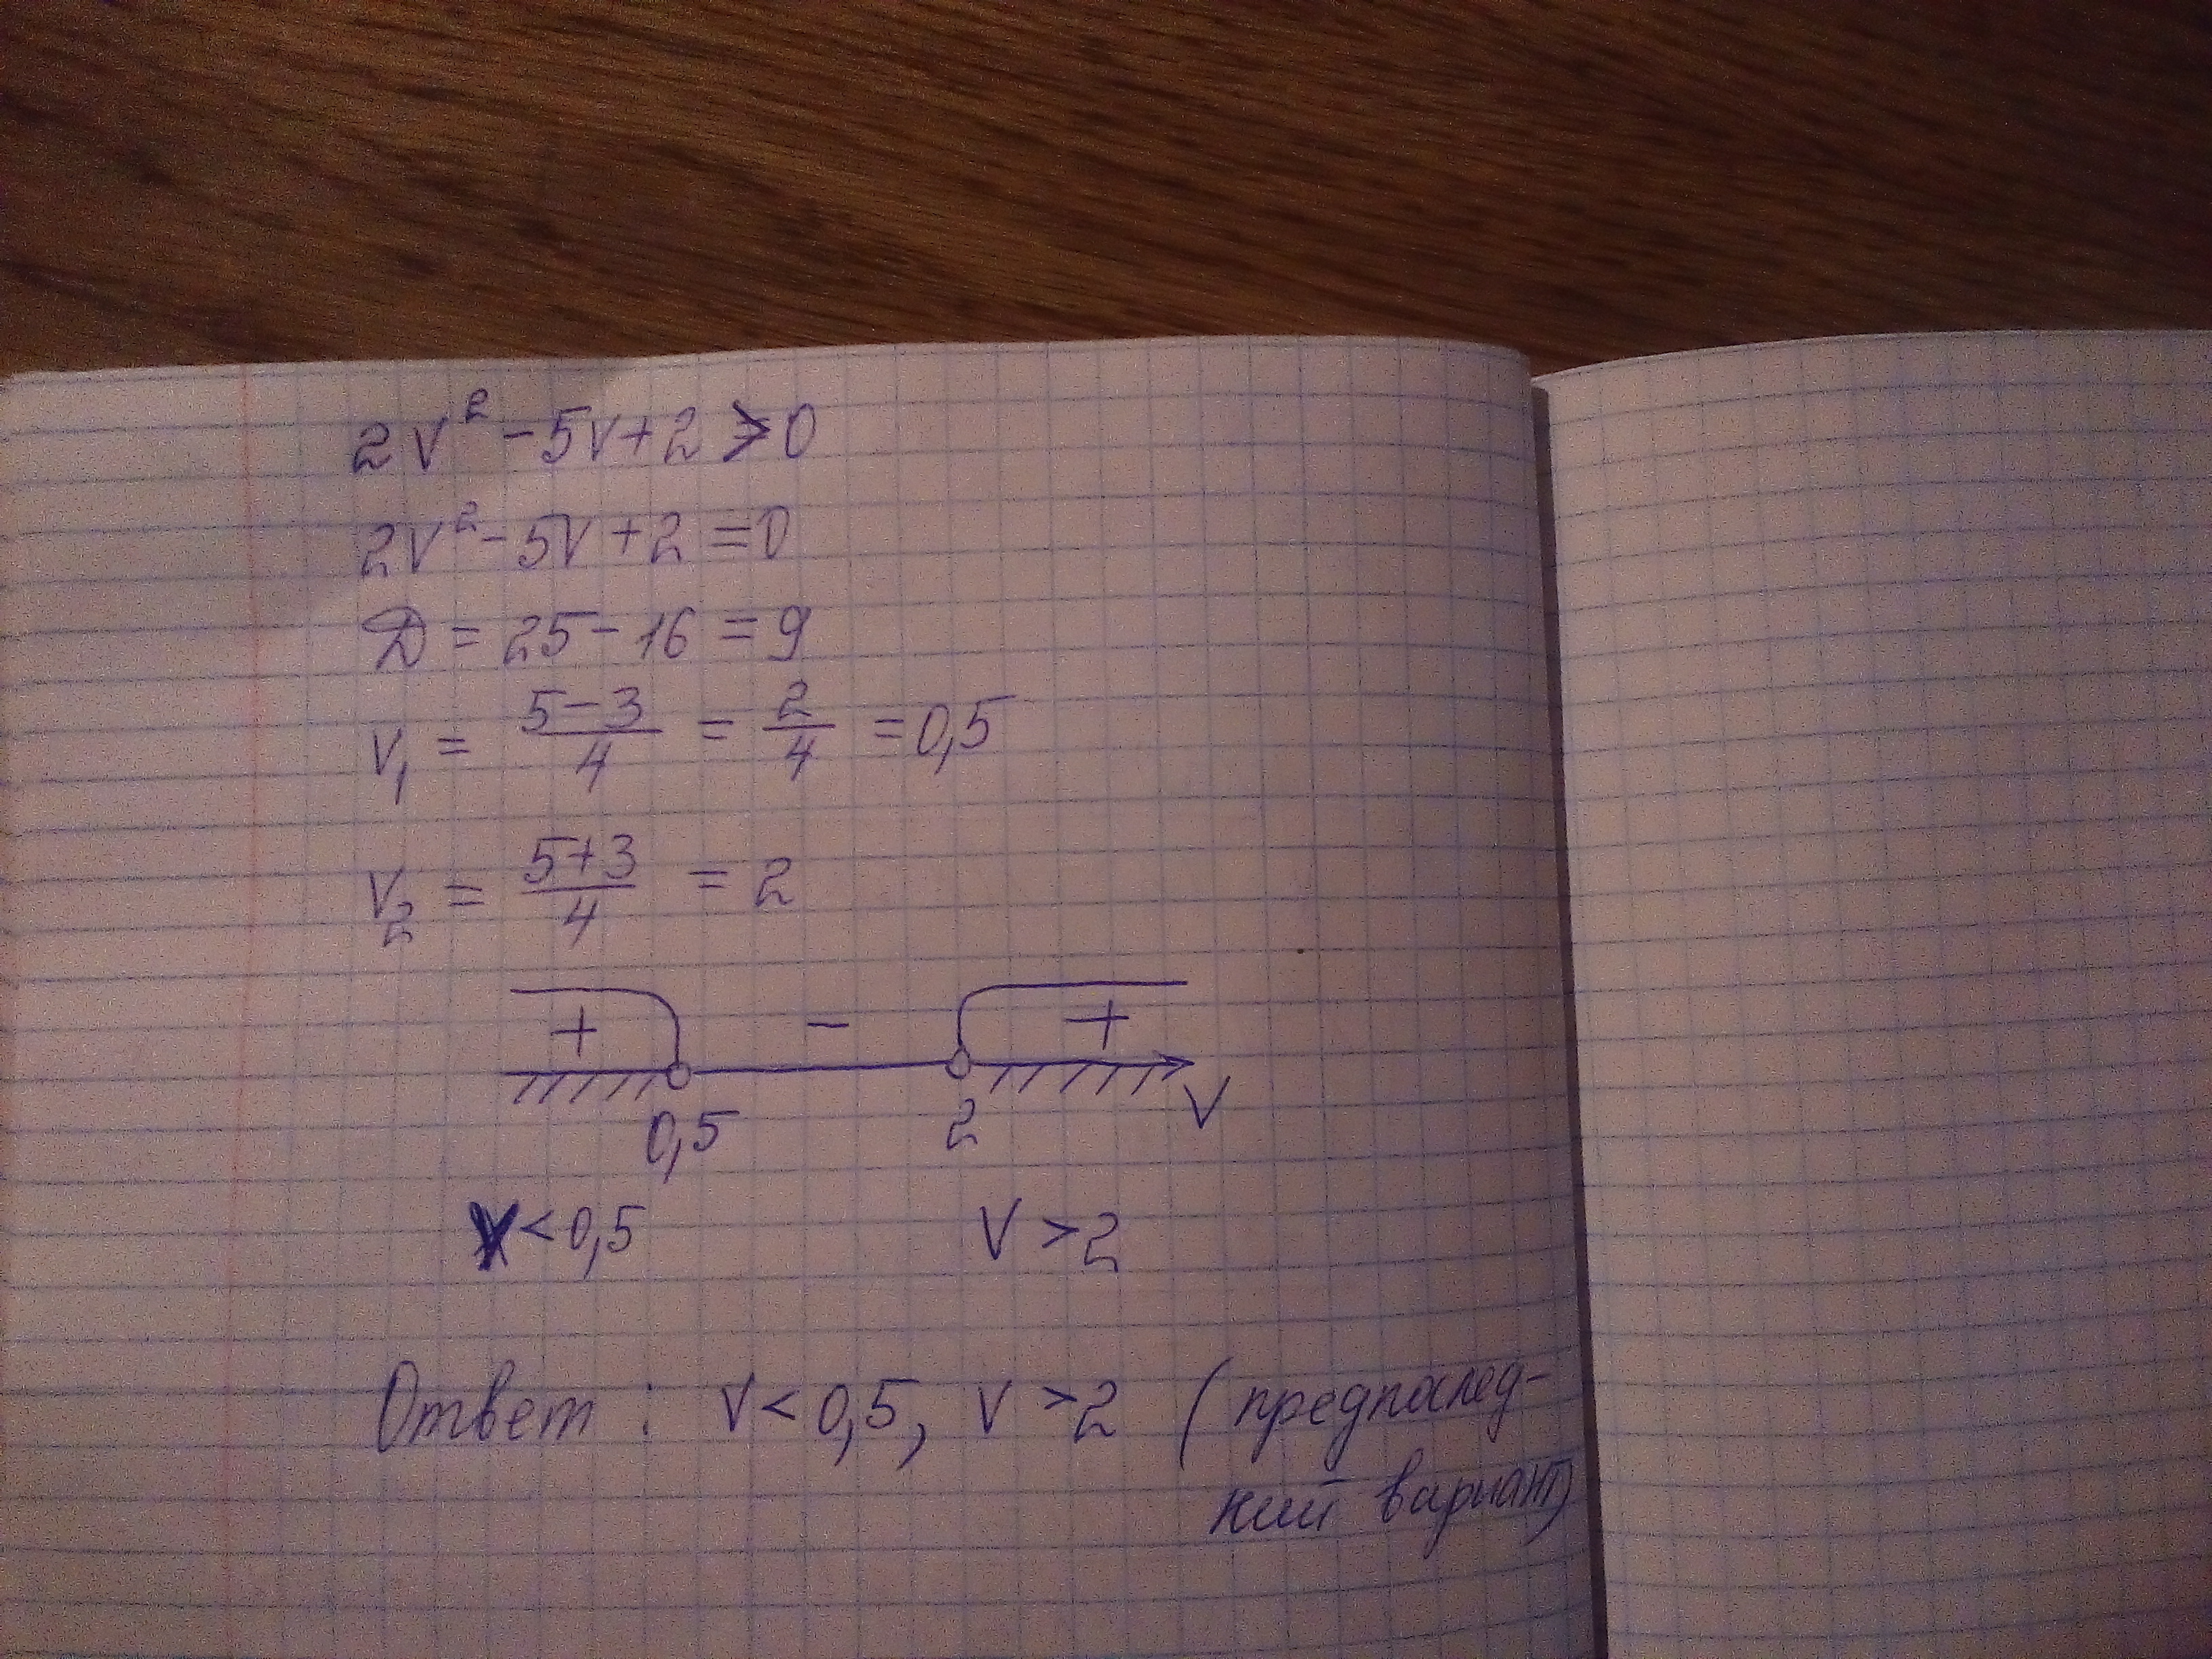 2v² - 5v + 2 > 0
2v² - 5v + 2 = 0
D = 25 - 16 = 9
v₁ = (5-3)/4 = 2/4 = 0,5
v₂ = (5+3)/4 = 2
+ - +
0,5 2 V
V < 0,5 V > 2
Ответ: V < 0,5, V > 2 (предпослед-
ний вариант)